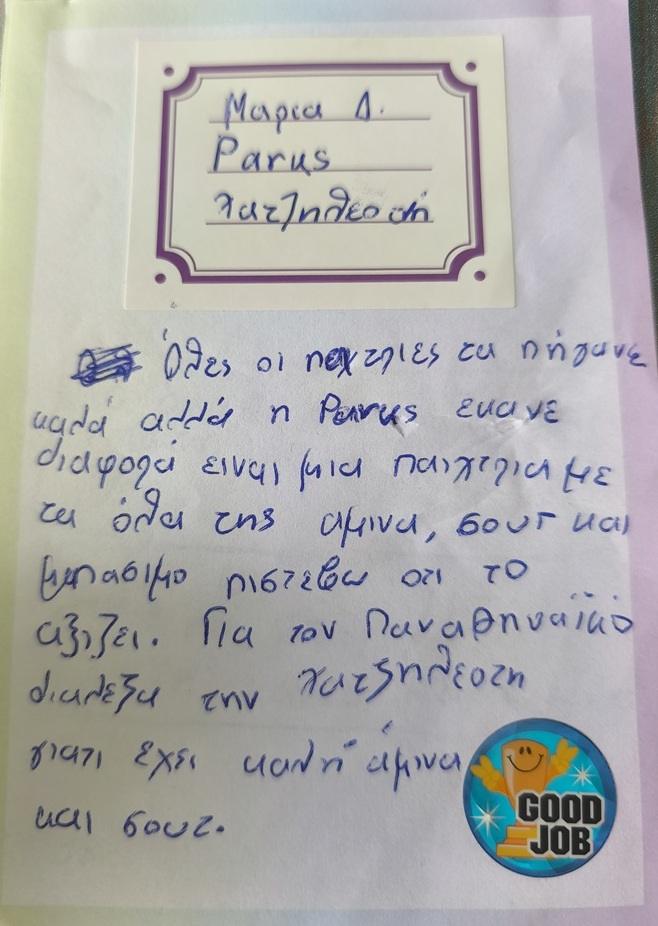 Μαρια Δ.
Parks
Χατζηλεοτή
Όλες οι παχτριες τα πήγανε
καλά αλλά η Parks εκανε
διαφορά ειναι μια παιχτρια με
τα όλα της αμινα, σουτ και
μπασιμο πιστεβω οτι το
αξιζει. Για τον Παναθηναϊκό
διαλεξα την Χατζηλεοτη
γιατι εχει καλή άμινα
και σουτ.
GOOD
JOB